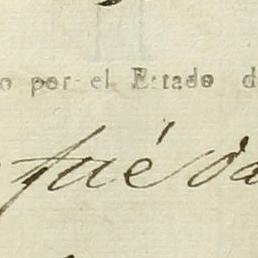 o por el Estado d
fué da